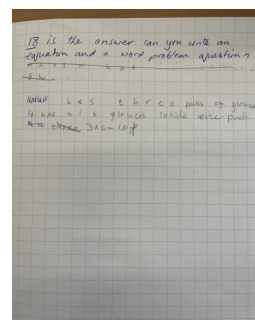 18 is the answer. can you write an
equation and a word problem question?
has three paks of gloves
it has six gloves inside one pack
three 3x6=18